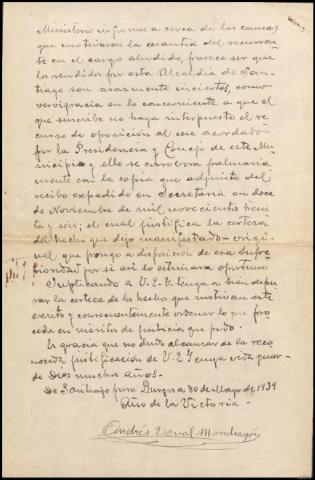 Ministerio informes a cerca de las causas
que motivaron la cesantía del recurren-
te en el cargo aludido, parece ser que
los rendidos por esta Alcaldía de San-
tiago son asaz mente inciertos, como
vervigracia en lo concerniente a que el
que suscribe no haya interpuesto el re-
curso de oposición al cese acordado
por la Presidencia y Concejo de este Mu-
nicipio y ello se corrobora palmaria
mente con la copia que adjunto del
recibo expedido en Secretaría en doce
de Noviembre de mil novecientos trein-
ta y seis; el cual justifica la certeza
del hecho que dejo manifestado origi-
nal que pongo a disposición de esa Supe-
rioridad por si así lo estimara oportuno
Suplicando a V.E. tenga a bien depu-
rar la certeza de los hechos que motivan este
escrito y consecuentemente ordenar lo que pro-
ceda en méritos de justicia que pido.
Es gracia que no dudo alcanzar de la reco-
nocida justificación de V.E. cuya vida guar-
de Dios muchos años.
De Santiago para Burgos a 30 de Mayo de 1939
Año de la Victoria.-
Andrés Mondragón